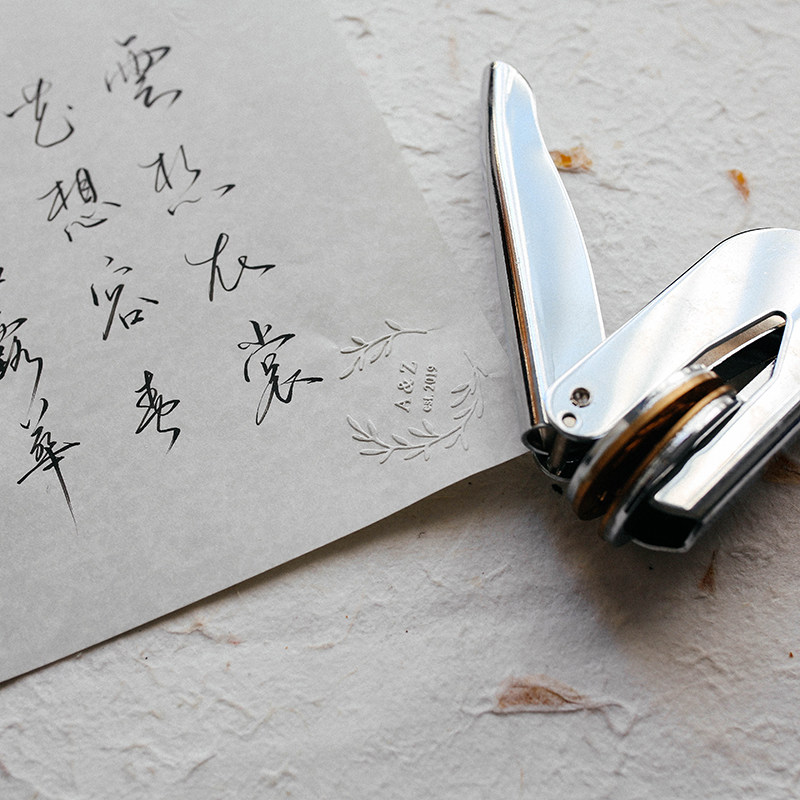 雲想衣裳
花想容春
露華
A & Z
est. 2019